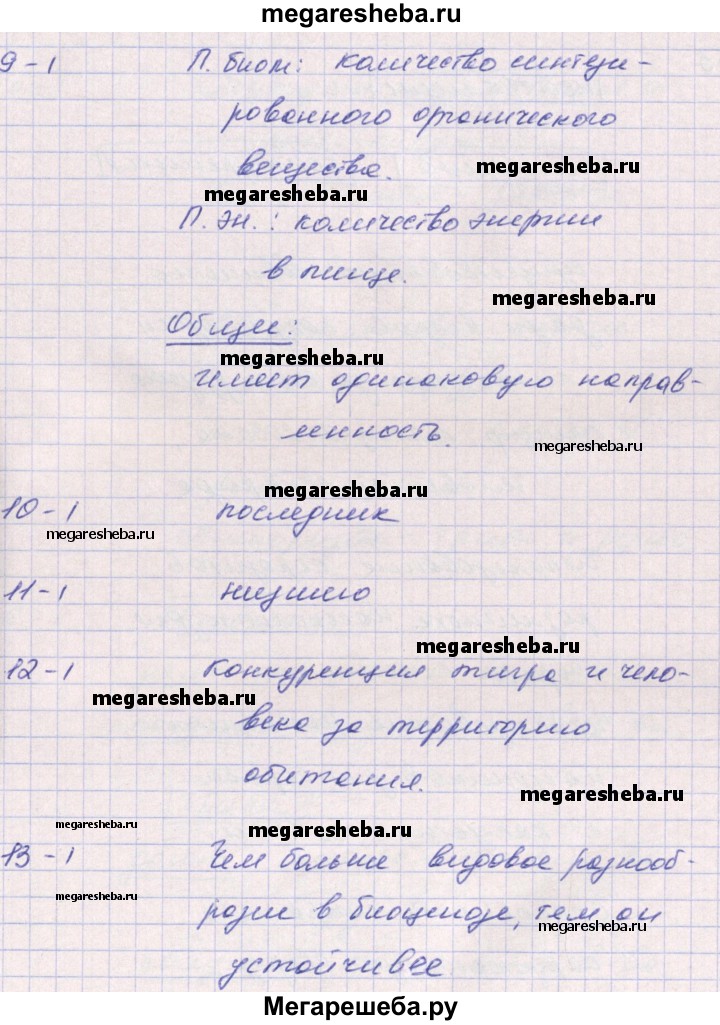 megaresheba.ru
9-1 П. биом: количество синтези-
рованного органического
вещества.
megaresheba.ru
megaresheba.ru
П. эн.: количество энергии
в пище.
megaresheba.ru
Общие:
megaresheba.ru
Имеет одинаковую направ-
ленность.
megaresheba.ru
megaresheba.ru
10-1 последних
megaresheba.ru
11-1 низшего
megaresheba.ru
12-1 Конкуренция тигра и чело-
megaresheba.ru
века за территорию
обитания.
megaresheba.ru
megaresheba.ru
megaresheba.ru
13-1 Чем больше видовое разнооб-
megaresheba.ru
разие в биоценозе, тем он
megaresheba.ru
устойчивее.
Мегарешеба.ру